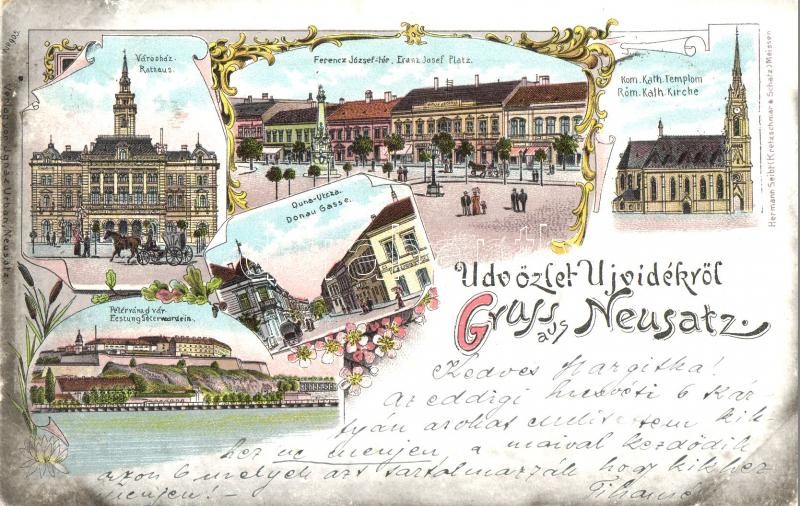 Városház.
Rathaus.
Ferencz József-tér, Franz Josef Platz.
Rom. Kath. Templom
Röm. Kath. Kirche
Duna-Utcza.
Donau Gasse.
Pétervárad vár
Festung Peterwardein.
Üdvözlet Ujvidékről
Gruss aus Neusatz.
Verlag von Ignáz Urban, Neusatz.
Hermann Seibt (Kretzschmar & Schatz) Meissen
Kedves Margitka!
Az eddigi husvéti 6 kár
tyán azokat említettem kik
hez ne menjen a maival kezdődik
azon 6 melyek azt tartalmazzák hogy kikhez
menjen! –